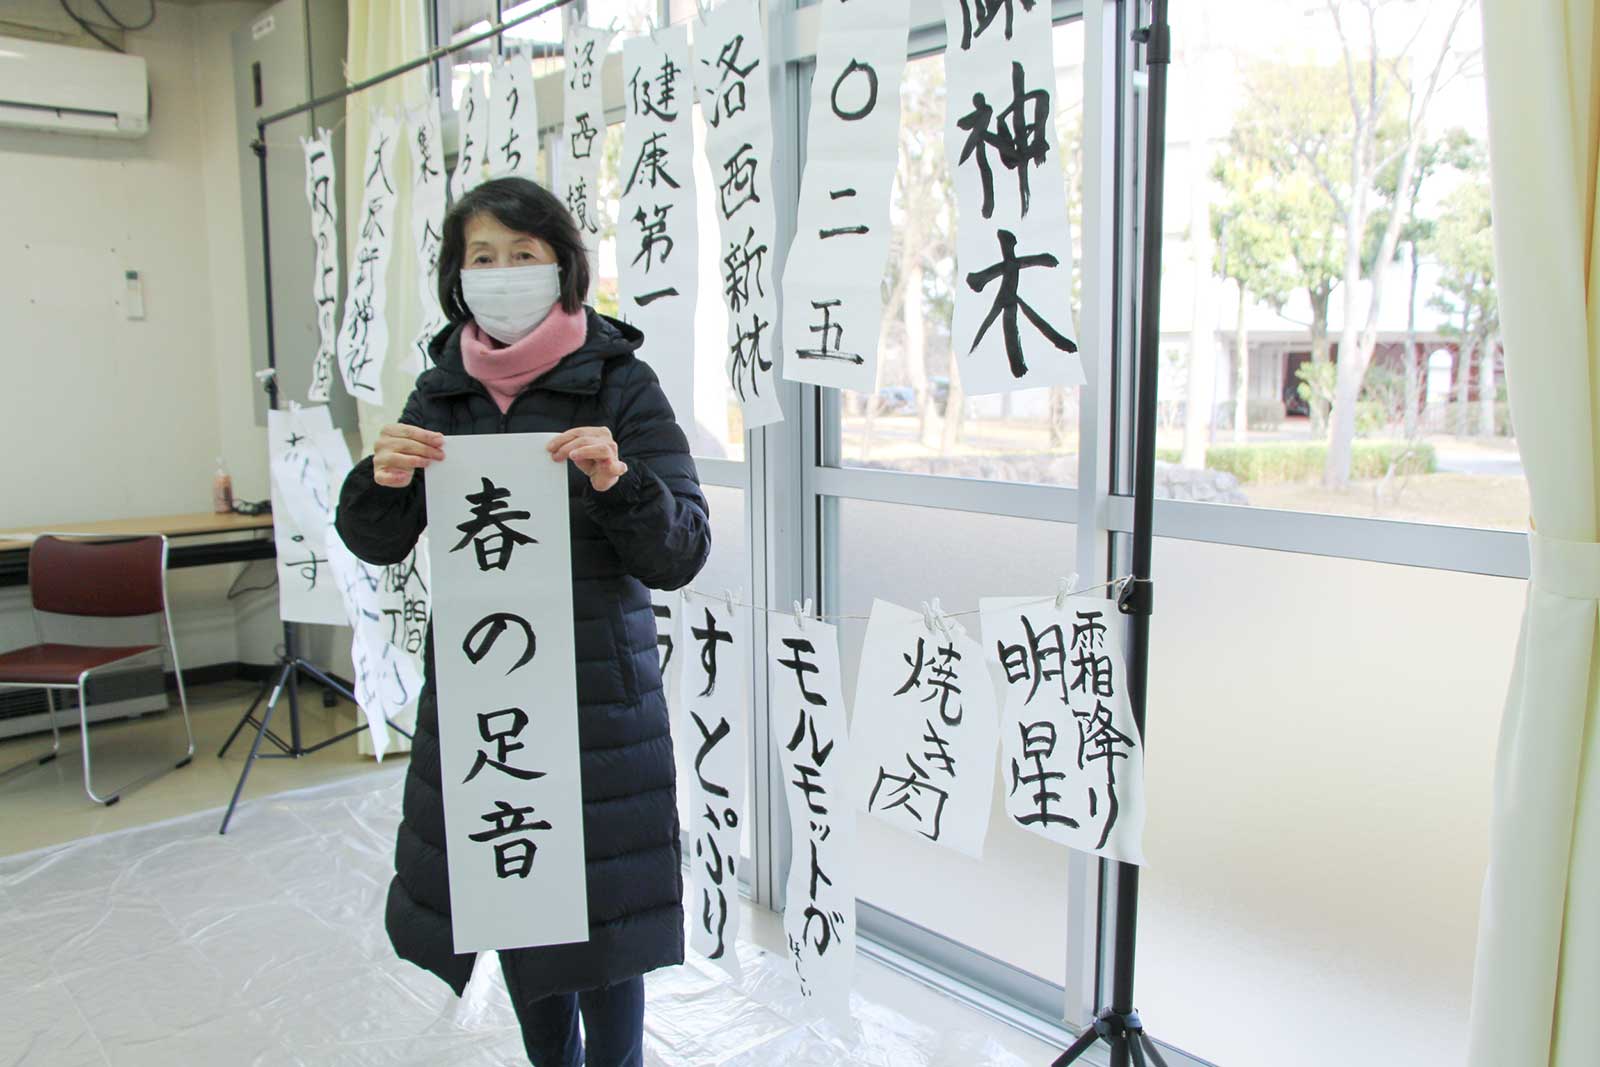 春の足音
御神木
〇二五
洛西新林
健康第一
洛西境
うち
うち
大原野神社
霜降り
明星
焼き肉
モルモットが
ほしい
すとぷり
人間